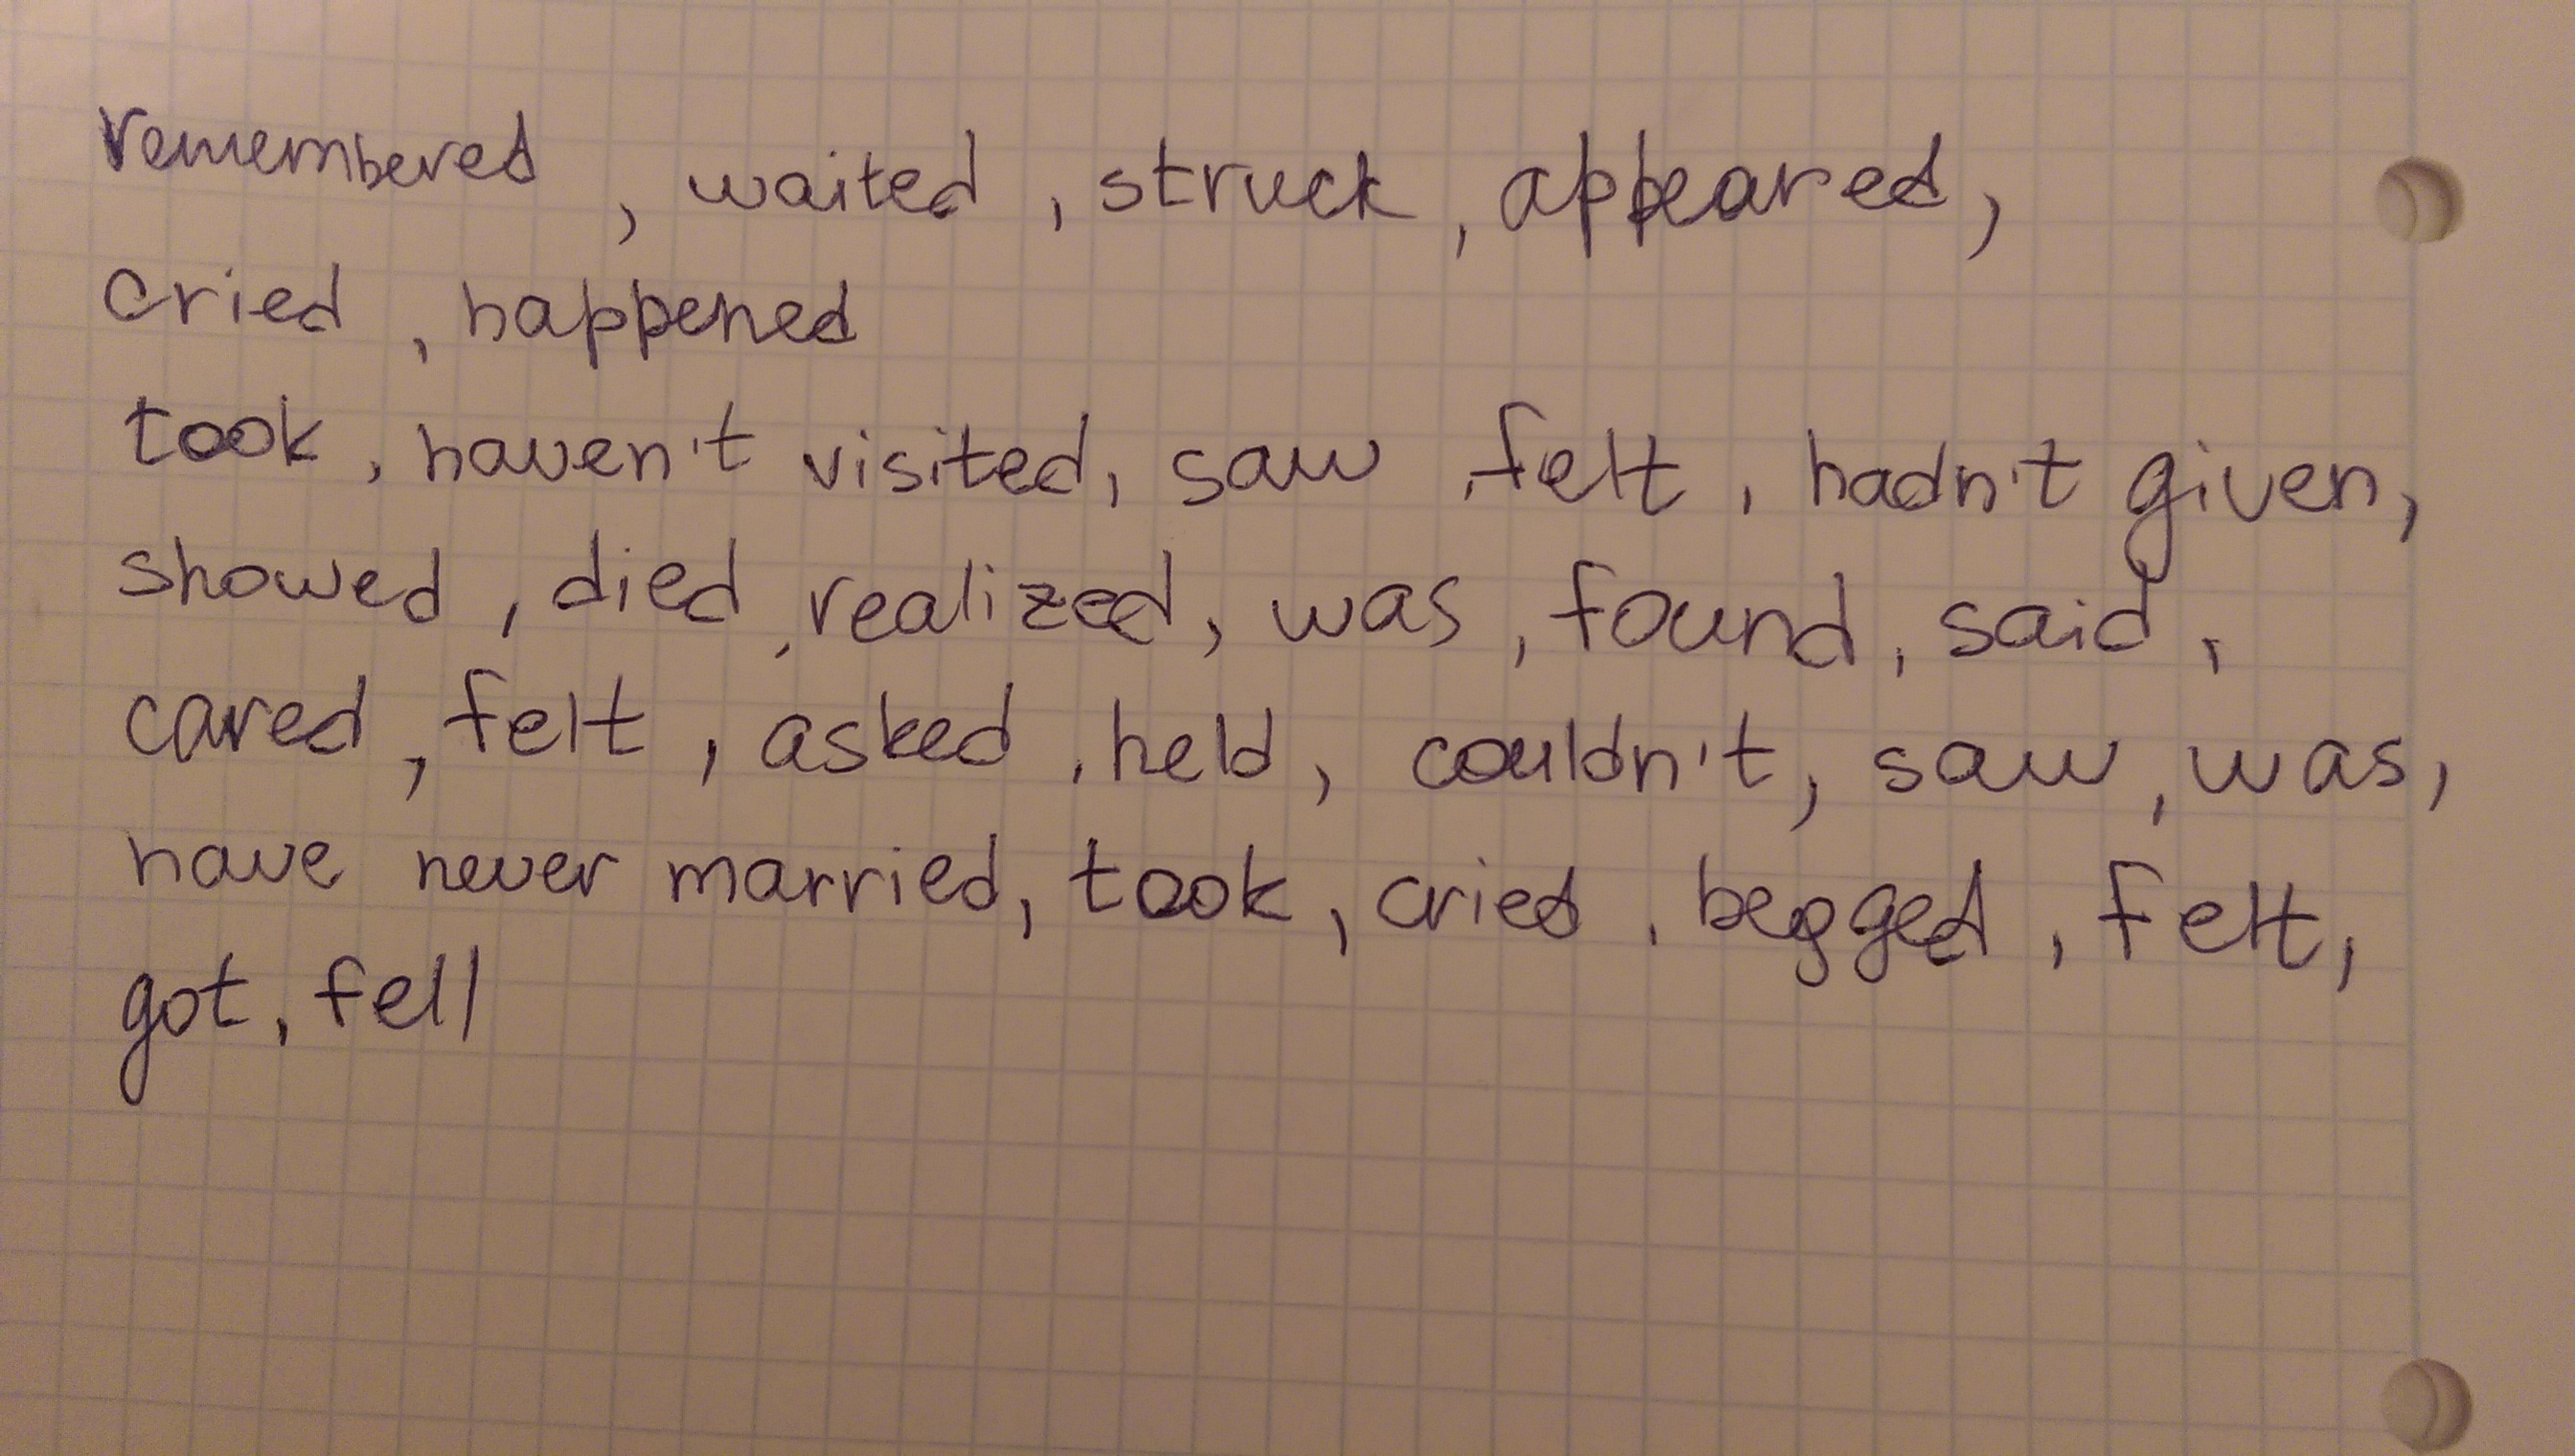 remembered, waited, struck, appeared,
cried, happened
took, haven't visited, saw, felt, hadn't given,
showed, died, realized, was, found, said,
cared, felt, asked, held, couldn't, saw, was,
have never married, took, cried, begged, felt,
got, fell